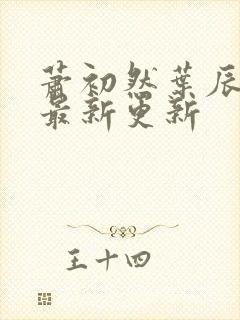 萧初然葉辰
最新更新
王十四